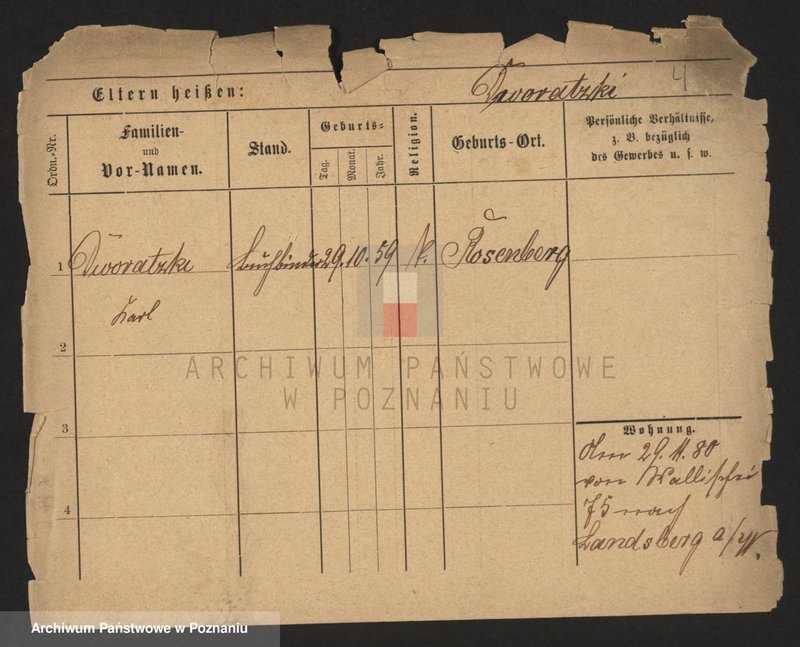 Dworatzki 4
Eltern heißen:
Ordn.-Nr.
Familien-
und
Vor-Namen.
Stand.
Geburts-
Tag.
Monat.
Jahr.
Religion.
Geburts-Ort.
Persönliche Verhältnisse,
z. B. bezüglich
des Gewerbes u. s. w.
1 Dworatzki Buchbinder 29. 10. 59 k. Rosenberg
Karl
2
3
4
Wohnung.
den 29. 11. 80
von Wallischei
75 nach
Landsberg a/W.
ARCHIWUM PAŃSTWOWE
W POZNANIU
Archiwum Państwowe w Poznaniu